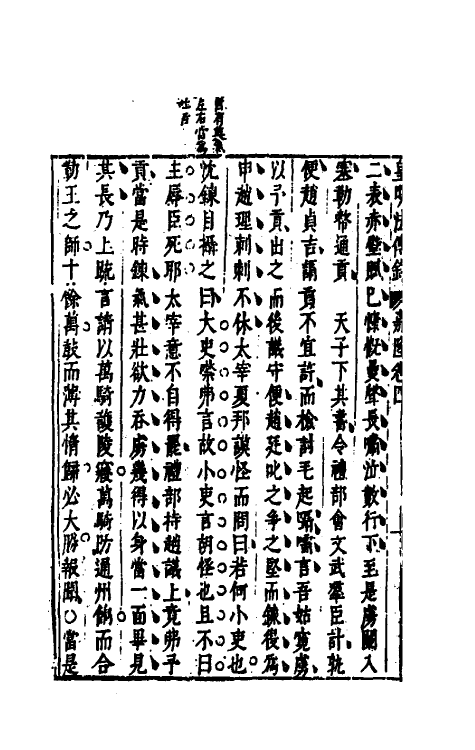 二表赤壁賦已慷慨曼聲長嘯泣數行下至是虜闌入
塞勒幣通貢　天子下其書令禮部會文武羣臣計孰
便趙貞吉謂貢不宜許而檢討毛起囁嚅言吾姑寬虜
以予貢出之而後議守便趙廷叱之爭之堅而鍊復爲
申趙理刺刺不休太宰夏邦謨怪而問曰若何小吏也
沈鍊目攝之曰大吏常弗言故小吏言胡怪也且不曰
主辱臣死耶太宰意不自得罷禮部持趙議上竟弗予
貢當是時鍊氣甚壯欲力吞虜幾得以身當一面畢見
其長乃上疏言請以萬騎護陵寢萬騎防通州餉而合
勤王之師十餘萬鼓而薄其惰歸必大勝報聞○當是